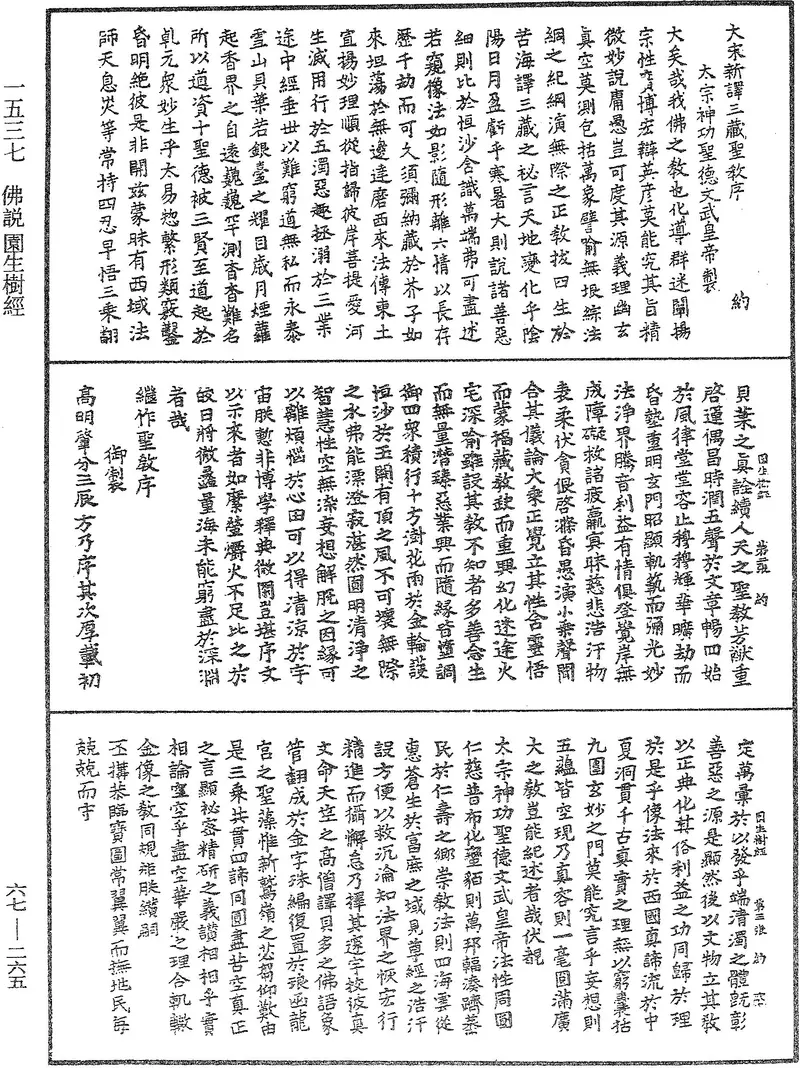 一五三七 佛説園生樹經
大宋新譯三藏聖教序 約
太宗神功聖德文武皇帝製
大矣哉我佛之教也化導群迷闡揚
宗性廣博宏辯英彦莫能究其旨精
微妙說庸愚豈可度其源義理幽玄
真空莫測包括萬象譬喻無垠綜法
網之紀綱演無際之正教拔四生於
苦海譯三藏之秘言天地變化乎陰
陽日月盈虧乎寒暑大則說諸善惡
細則比於恒沙含識萬端弗可盡述
若窺像法如影隨形離六情以長存
歷千劫而可久須彌納藏於芥子如
來坦蕩於無邊達磨西來法傳東土
宣揚妙理順從指歸彼岸菩提愛河
生滅用行於五濁惡趣拯溺於三業
途中經垂世以難窮道無私而永泰
雪山貝葉若銀臺之耀目歲月煙蘿
起香界之自遠巍巍罕測杳杳難名
所以道資十聖德被三賢至道起於
乹元衆妙生乎太易揔繁形類竅鑿
昏明絶彼是非開兹蒙昧有西域法
師天息灾等常持四忍早悟三乘翻
貝葉之真詮續人天之聖教芳猷重
啓運偶昌時潤五聲於文章暢四始
於風律堂堂容止穆穆輝華曠劫而
昏墊重明玄門昭顯軌範而彌光妙
法淨界騰音利益有情俱登覺岸無
成障礙救諸疲羸冥昧慈悲浩汗物
表柔伏貪佷啓滌昏愚演小乘聲聞
合其儀論大乘正覺立其性含靈悟
而蒙福藏教缺而重興幻化迷途火
宅深喻雖設其教不知者多善念生
而無量潛臻惡業興而隨緣皆墮調
御四衆積行十方澍花雨於金輪護
恒沙於玉闕有頂之風不可壞無際
之水弗能漂澄寂湛然圓明清淨之
智慧性空無染妄想解脱之因緣可
以離煩惱於心田可以得清涼於宇
宙朕慙非博學釋典微閑豈堪序文
以示來者如縻螢爝火不足比之於
皎日將微蠡量海未能窮盡於深淵
者哉
繼作聖教序
御製
高明肇分三辰方乃序其次厚載初
定萬彙於以發乎端清濁之體旣彰
善惡之源是顯然後以文物立其教
以正典化其俗利益之功同歸於理
於是乎像法來於西國真諦流於中
夏洞貫千古真實之理無以窮囊括
九圍玄妙之門莫能究言乎妄想則
五蘊皆空現乃真容則一毫圓滿廣
大之教豈能紀述者哉伏覩
太宗神功聖德文武皇帝法性周圓
仁慈普布化蠻貊則萬邦輻湊躋黎
民於仁壽之鄉崇教法則四海雲從
惠蒼生於富庶之域見尊經之浩汗
設方便以救沉淪知法界之恢宏行
精進而攝懈怠乃擇其邃宇校彼真
文命天竺之高僧譯貝多之佛語象
管翻成於金字珠編復置於琅函龍
宮之聖藻惟新鷲嶺之苾芻仰歎由
是三乘共貫四諦同圓盡苦空真正
之言顯祕密精研之義讚相相乎實
相論空空乎盡空華嚴之理合軌轍
金像之教同規矩朕纉嗣
丕搆恭臨寶圖常翼翼而撫兆民每
兢兢而守
六七 — 二六五